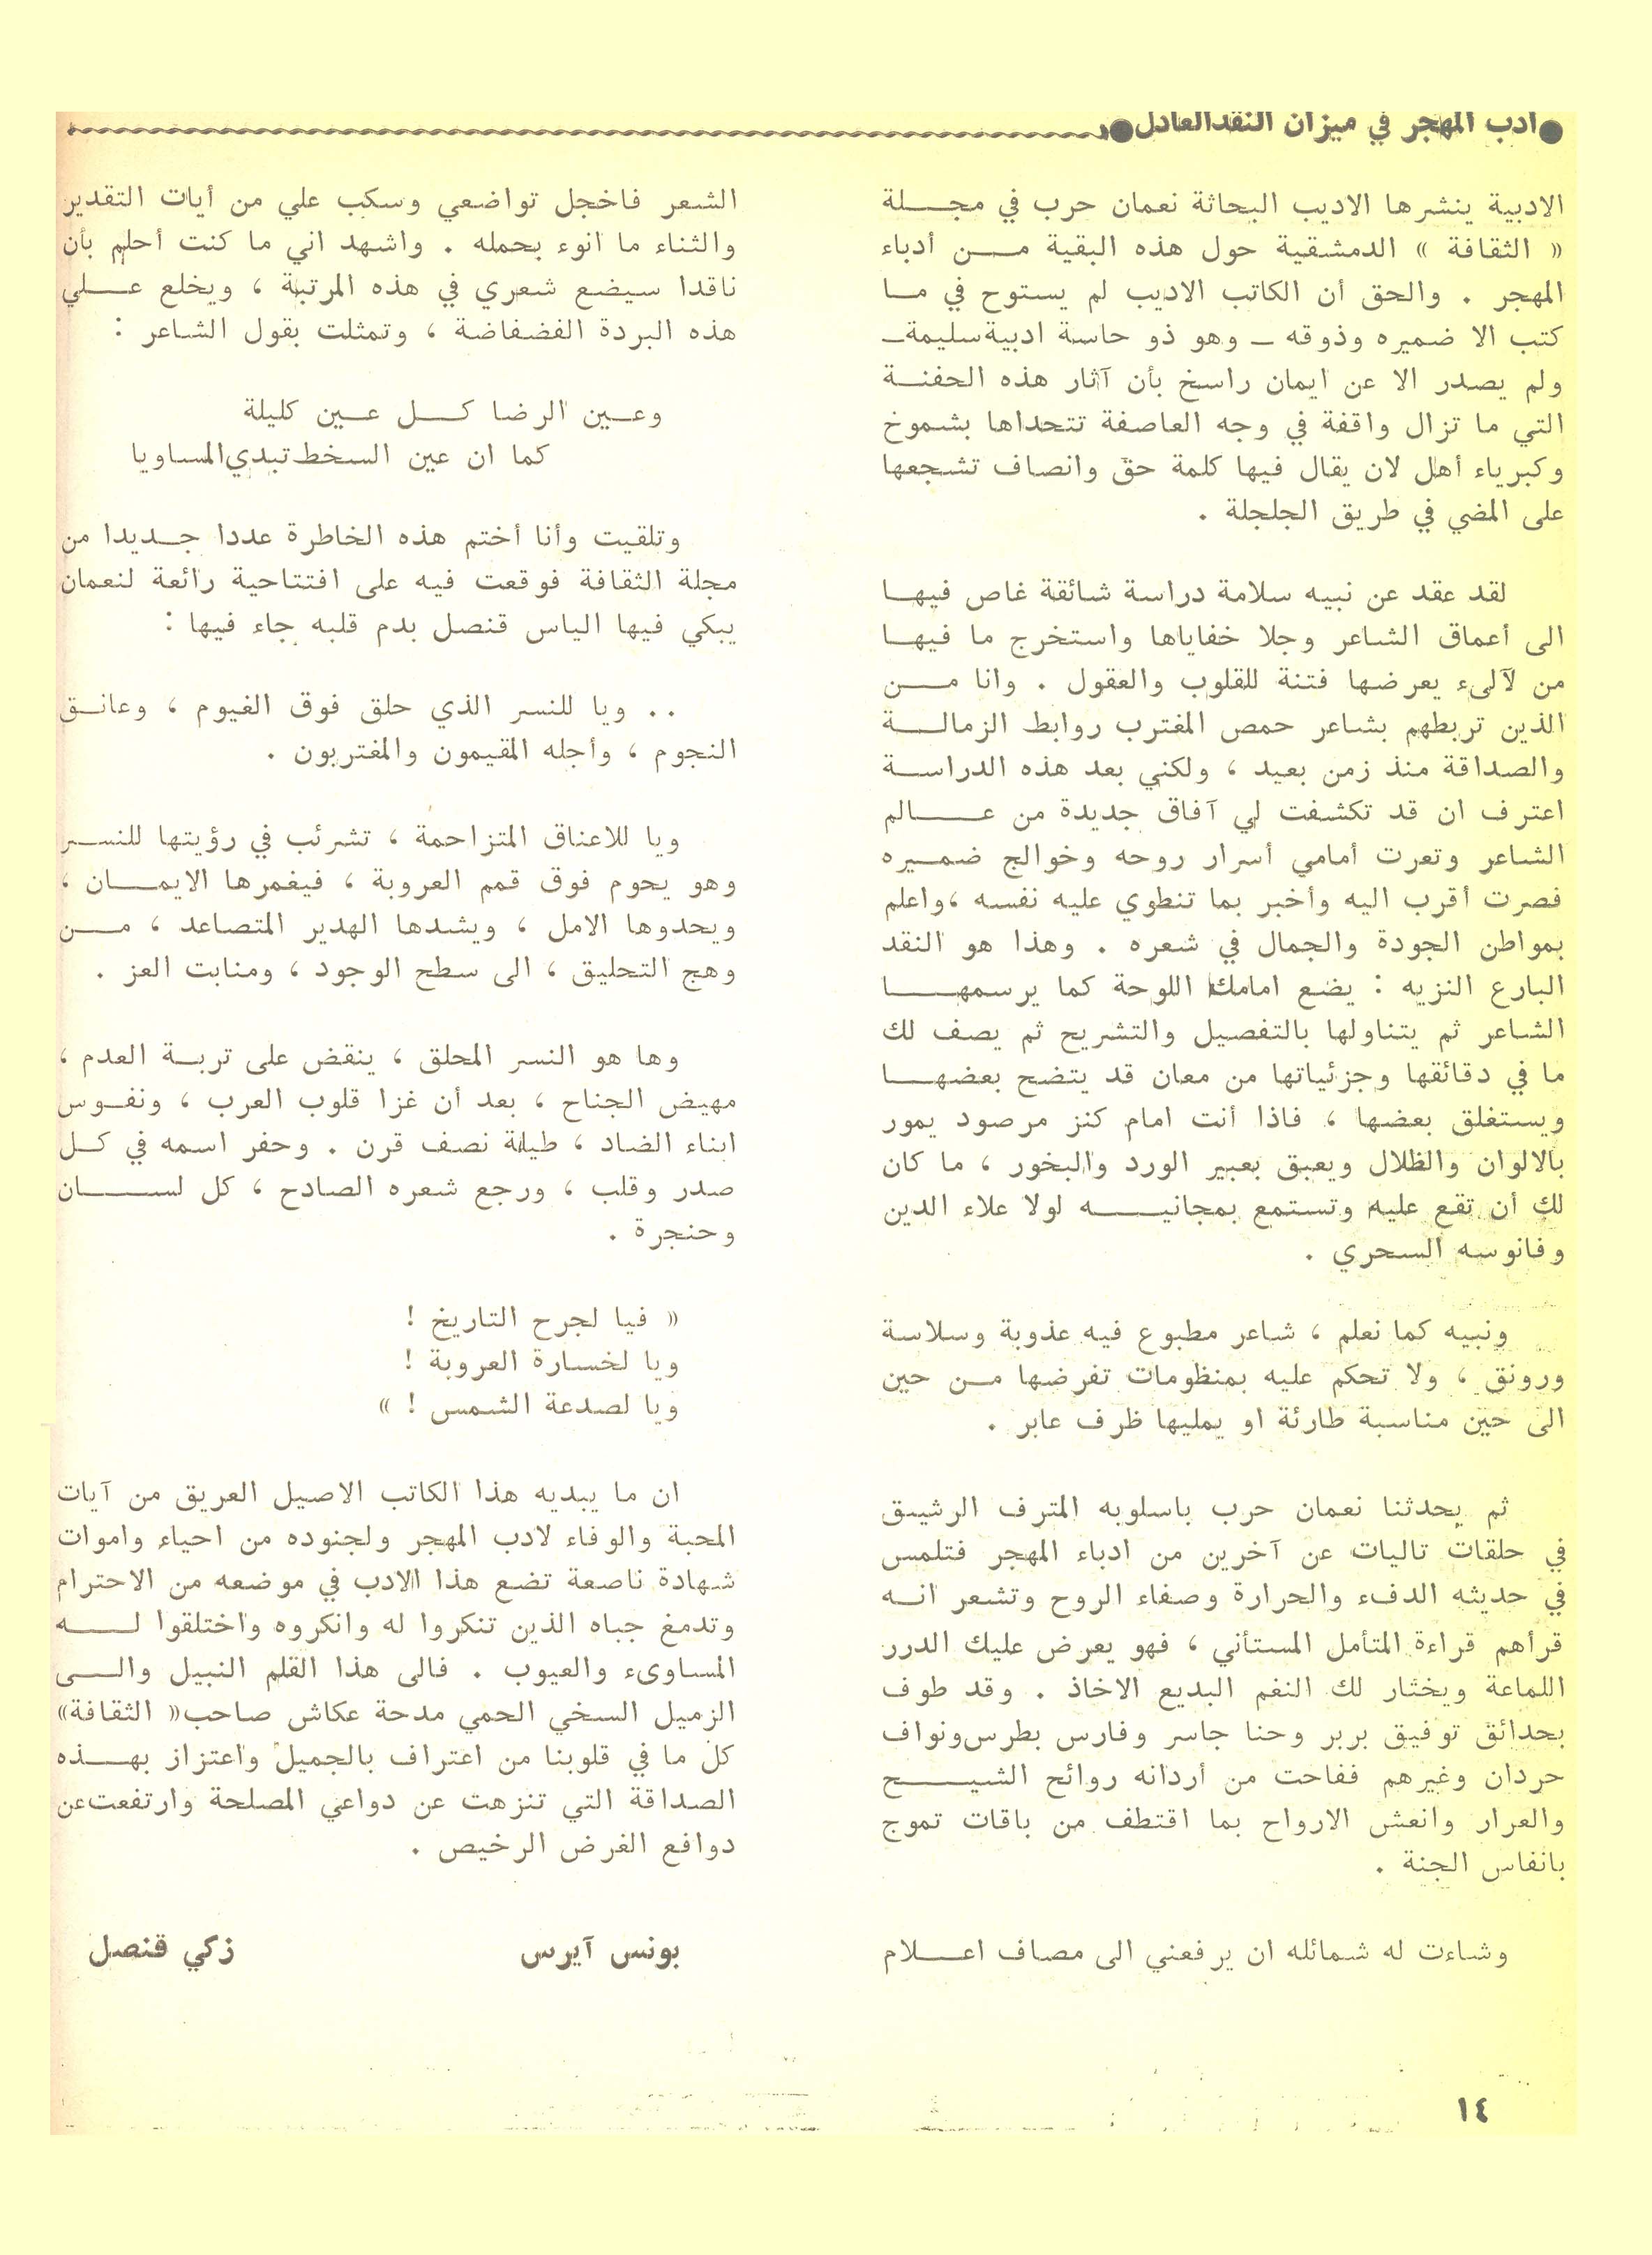 ●ادب المهجر في ميزان النقد العادل●
الادبية ينشرها الاديب البحاثة نعمان حرب في مجلة
« الثقافة » الدمشقية حول هذه البقية من أدباء
المهجر . والحق أن الكاتب الاديب لم يستوح في ما
كتب الا ضميره وذوقه – وهو ذو حاسة ادبية سليمة –
ولم يصدر الا عن ايمان راسخ بأن آثار هذه الحفنة
التي ما تزال واقفة في وجه العاصفة تتحداها بشموخ
وكبرياء أهل لان يقال فيها كلمة حق وانصاف تشجعها
على المضي في طريق الجلجلة .
لقد عقد عن نبيه سلامة دراسة شائقة غاص فيها
الى أعماق الشاعر وجلا خفاياها واستخرج ما فيها
من لآلىء يعرضها فتنة للقلوب والعقول . وانا من
الذين تربطهم بشاعر حمص المغترب روابط الزمالة
والصداقة منذ زمن بعيد ، ولكني بعد هذه الدراسة
اعترف ان قد تكشفت لي آفاق جديدة من عالم
الشاعر وتعرت أمامي أسرار روحه وخوالج ضميره
فصرت أقرب اليه وأخبر بما تنطوي عليه نفسه ، واعلم
بمواطن الجودة والجمال في شعره . وهذا هو النقد
البارع النزيه : يضع امامك اللوحة كما يرسمها
الشاعر ثم يتناولها بالتفصيل والتشريح ثم يصف لك
ما في دقائقها وجزئياتها من معان قد يتضح بعضها
ويستغلق بعضها ، فاذا أنت امام كنز مرصود يمور
بالالوان والظلال ويعبق بعبير الورد والبخور ، ما كان
لك أن تقع عليه وتستمع بمجانيه لولا علاء الدين
وفانوسه السحري .
ونبيه كما نعلم ، شاعر مطبوع فيه عذوبة وسلاسة
ورونق ، ولا تحكم عليه بمنظومات تفرضها من حين
الى حين مناسبة طارئة او يمليها ظرف عابر .
ثم يحدثنا نعمان حرب باسلوبه المترف الرشيق
في حلقات تاليات عن آخرين من ادباء المهجر فتلمس
في حديثه الدفء والحرارة وصفاء الروح وتشعر انه
قرأهم قراءة المتأمل المستأني ، فهو يعرض عليك الدرر
اللماعة ويختار لك النغم البديع الاخاذ . وقد طوف
بحدائق توفيق بربر وحنا جاسر وفارس بطرس ونواف
حردان وغيرهم ففاحت من أردانه روائح الشيح
والعرار وانعش الارواح بما اقتطف من باقات تموج
بانفاس الجنة .
وشاءت له شمائله ان يرفعني الى مصاف اعلام
الشعر فاخجل تواضعي وسكب علي من أيات التقدير
والثناء ما انوء بحمله . واشهد اني ما كنت أحلم بأن
ناقدا سيضع شعري في هذه المرتبة ، ويخلع علي
هذه البردة الفضفاضة ، وتمثلت بقول الشاعر :
وعين الرضا كل عين كليلة
كما ان عين السخط تبدي المساويا
وتلقيت وأنا أختم هذه الخاطرة عددا جديدا من
مجلة الثقافة فوقعت فيه على افتتاحية رائعة لنعمان
يبكي فيها الياس قنصل بدم قلبه جاء فيها :
.. ويا للنسر الذي حلق فوق الغيوم ، وعانق
النجوم ، وأجله المقيمون والمغتربون .
ويا للاعناق المتزاحمة ، تشرئب في رؤيتها للنسر
وهو يحوم فوق قمم العروبة ، فيغمرها الايمان ،
ويحدوها الامل ، ويشدها الهدير المتصاعد ، من
وهج التحليق ، الى سطح الوجود ، ومنابت العز .
وها هو النسر المحلق ، ينقض على تربة العدم ،
مهيض الجناح ، بعد أن غزا قلوب العرب ، ونفوس
ابناء الضاد ، طيلة نصف قرن . وحفر اسمه في كل
صدر وقلب ، ورجع شعره الصادح ، كل لسان
وحنجرة .
« فيا لجرح التاريخ !
ويا لخسارة العروبة !
ويا لصدعة الشمس ! »
ان ما يبديه هذا الكاتب الاصيل العريق من آيات
المحبة والوفاء لادب المهجر ولجنوده من احياء واموات
شهادة ناصعة تضع هذا الادب في موضعه من الاحترام
وتدمغ جباه الذين تنكروا له وانكروه واختلقوا له
المساوىء والعيوب . فالى هذا القلم النبيل والى
الزميل السخي الحمي مدحة عكاش صاحب « الثقافة »
كل ما في قلوبنا من اعتراف بالجميل واعتزاز بهذه
الصداقة التي تنزهت عن دواعي المصلحة وارتفعت عن
دوافع الغرض الرخيص .
بونس آيرس زكي قنصل
١٤